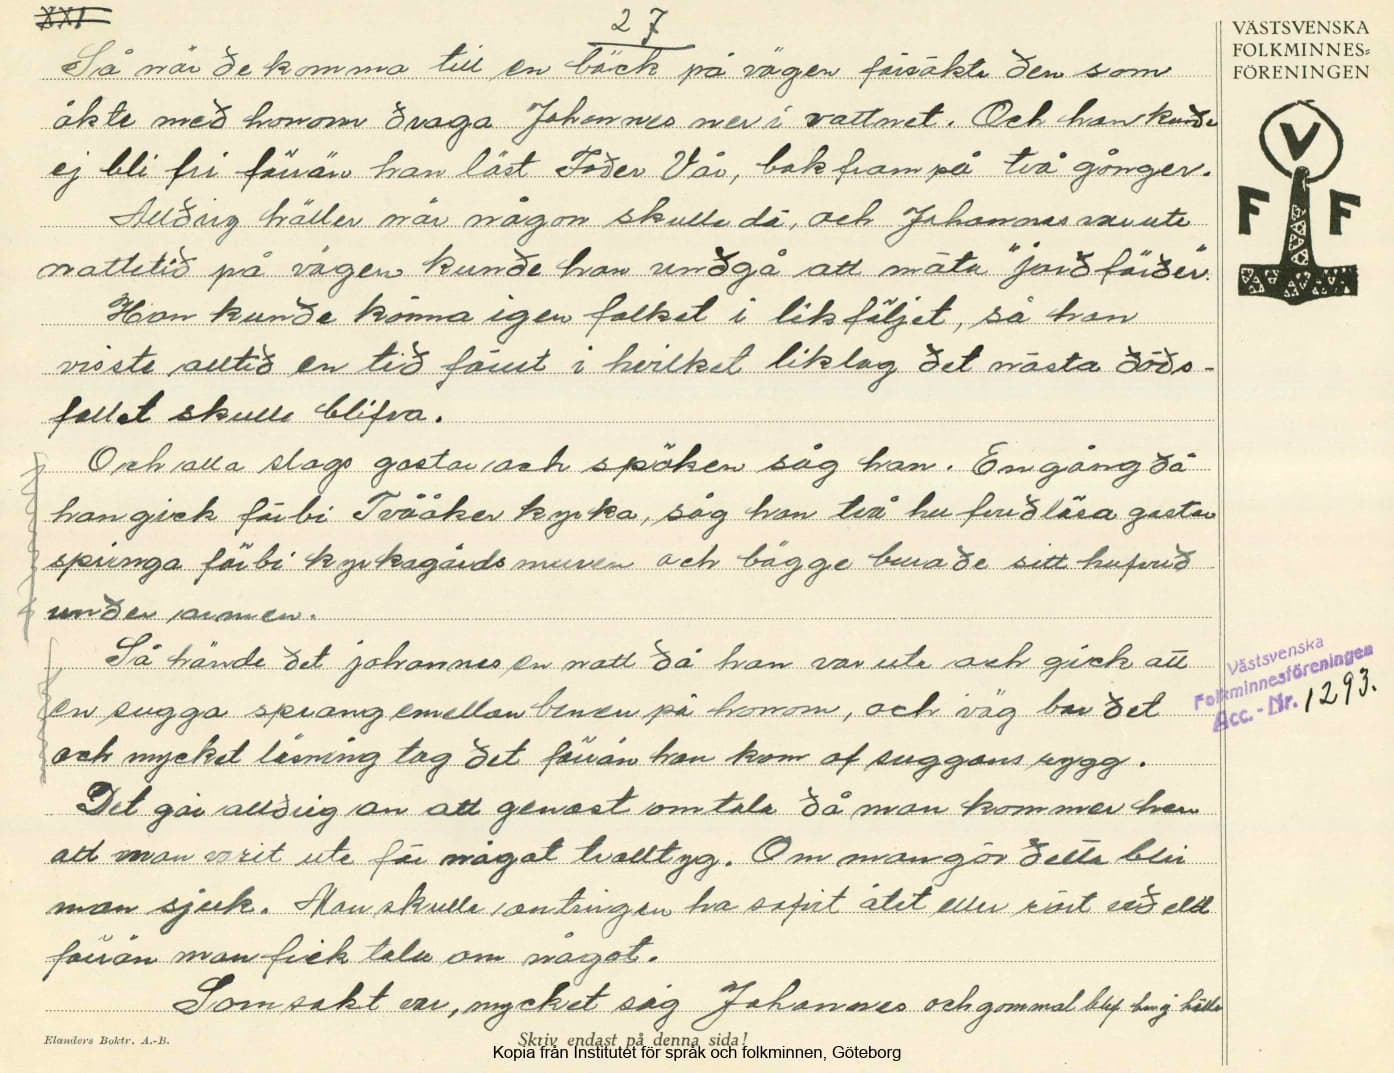 XXI
27
Så när de komma till en bäck på vägen försökte den som
åkte med honom draga Johannes ner i vattnet. Och han kunde
ej bli fri förrän han läst Fader Vår, bakfram på två gånger.
Alldrig häller när någon skulle dö, och Johannes var ute
nattetid på vägen kunde han undgå att möta "jordfärder".
Han kunde känna igen folket i likföljet, så han
visste alltid en tid förut i hvilket liklag det nästa döds-
fallet skulle blifva.
Och alla slags gastar och spöken såg han. En gång då
han gick förbi Tvååker kyrka, såg han två hufvudlösa gastar
springa förbi kyrkogårdsmuren och bägge buro de sitt hufvud
under armen.
Så hände det johannes en natt då han var ute och gick att
en sugga sprang emellan benen på honom, och iväg bar det
och mycket läsning tog det förrän han kom af suggans rygg.
Det går alldrig an att genast omtala då man kommer hem
att man varit ute för något trolltyg. Om man gör detta blir
man sjuk. Man skulle antingen ha sofvit ätit eller rört ved eld
förrän man fick tala om något.
Som sakt var, mycket såg Johannes och gammal blef han ej häller
VÄSTSVENSKA
FOLKMINNES=
FÖRENINGEN
V
F F
Västsvenska
Folkminnesföreningen
Acc. - Nr. 1293.
Elanders Boktr. A.-B.
Skriv endast på denna sida!
Kopia från Institutet för språk och folkminnen, Göteborg